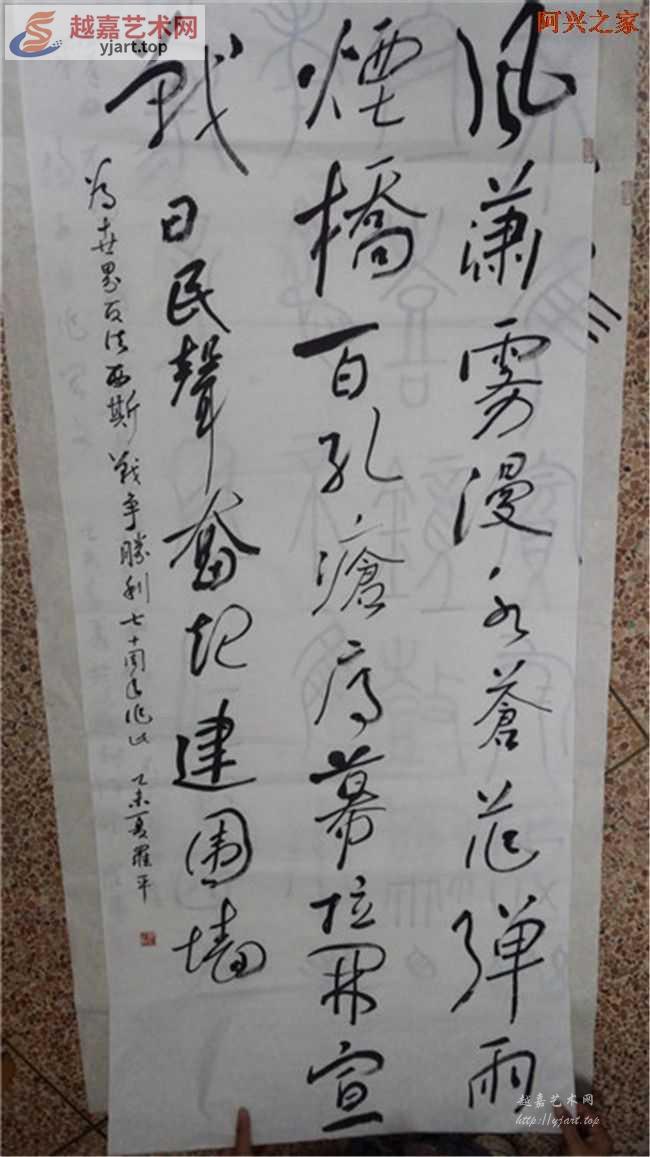 越嘉艺术网
yjart.top
阿兴之家
风潇雾漫水蒼茫弹雨
煙橋百孔瘡序幕拉開宣
戰日民聲奮起建围墙
为世界反法西斯戰争勝利七十周年作此 乙未夏羅平
越嘉艺术网
http://yjart.top